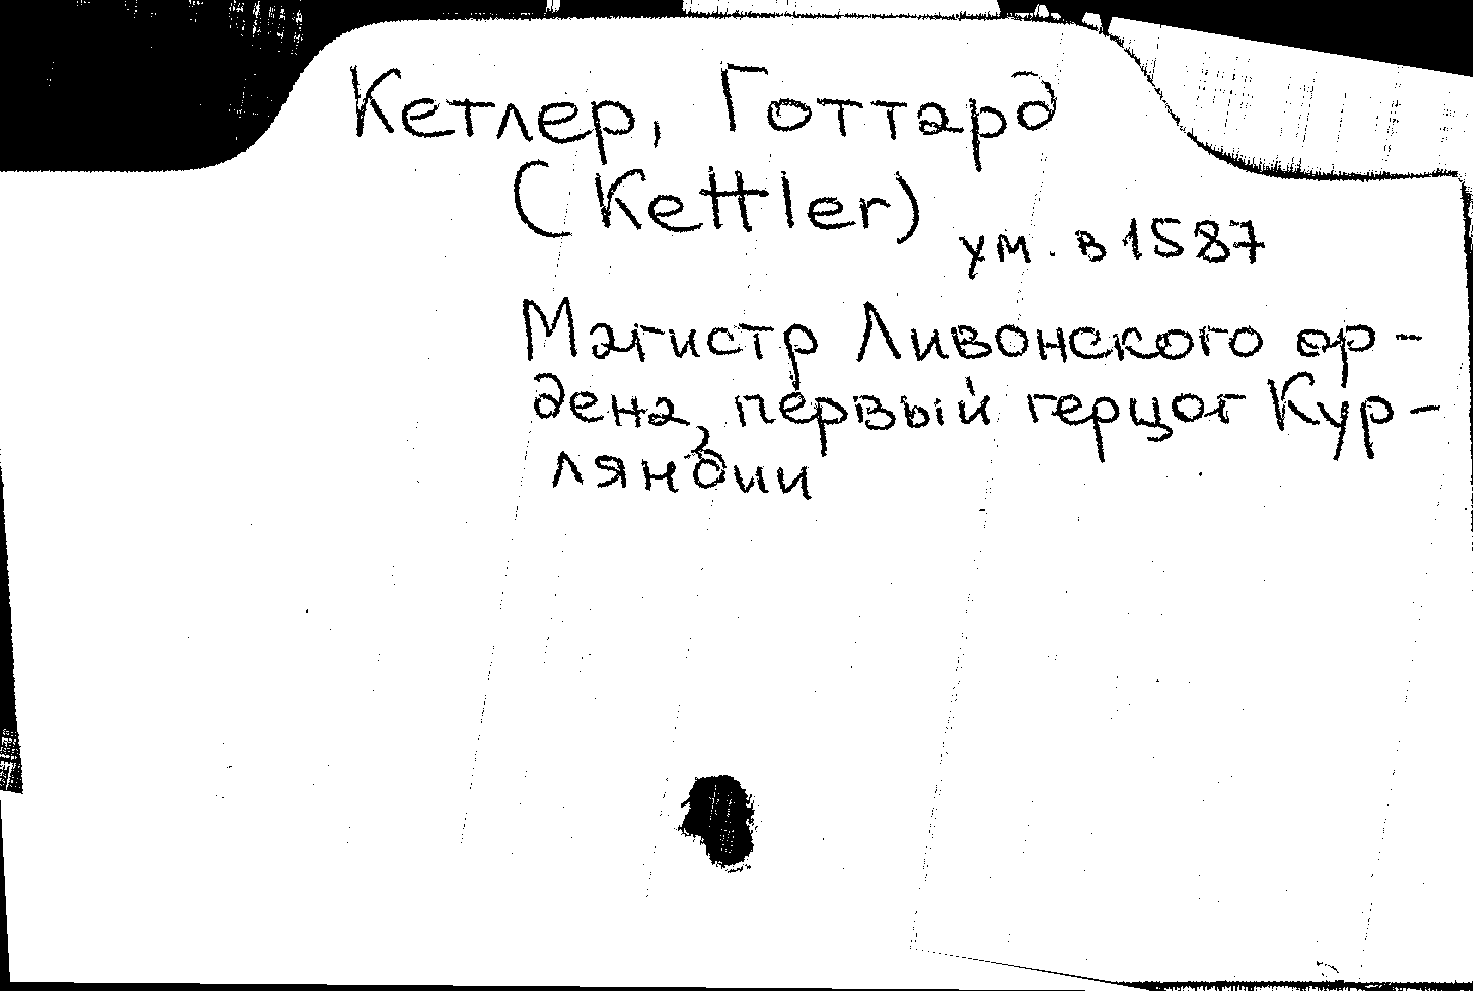 Кетлер, Готтард
(Kettler)
ум. в 1587
Магистр Ливонского ор-
дена, первый герцог Кур-
ляндии